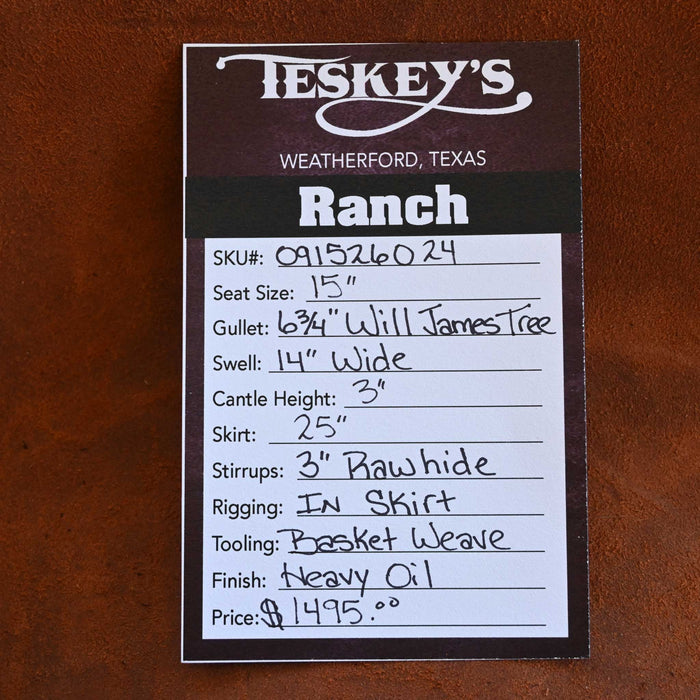 TESKEY'S
WEATHERFORD, TEXAS
Ranch
SKU#: 091526024
Seat Size: 15"
Gullet: 6¾" Will James Tree
Swell: 14" Wide
Cantle Height: 3"
Skirt: 25"
Stirrups: 3" Rawhide
Rigging: IN Skirt
Tooling: Basket Weave
Finish: Heavy Oil
Price: $1495.⁰⁰